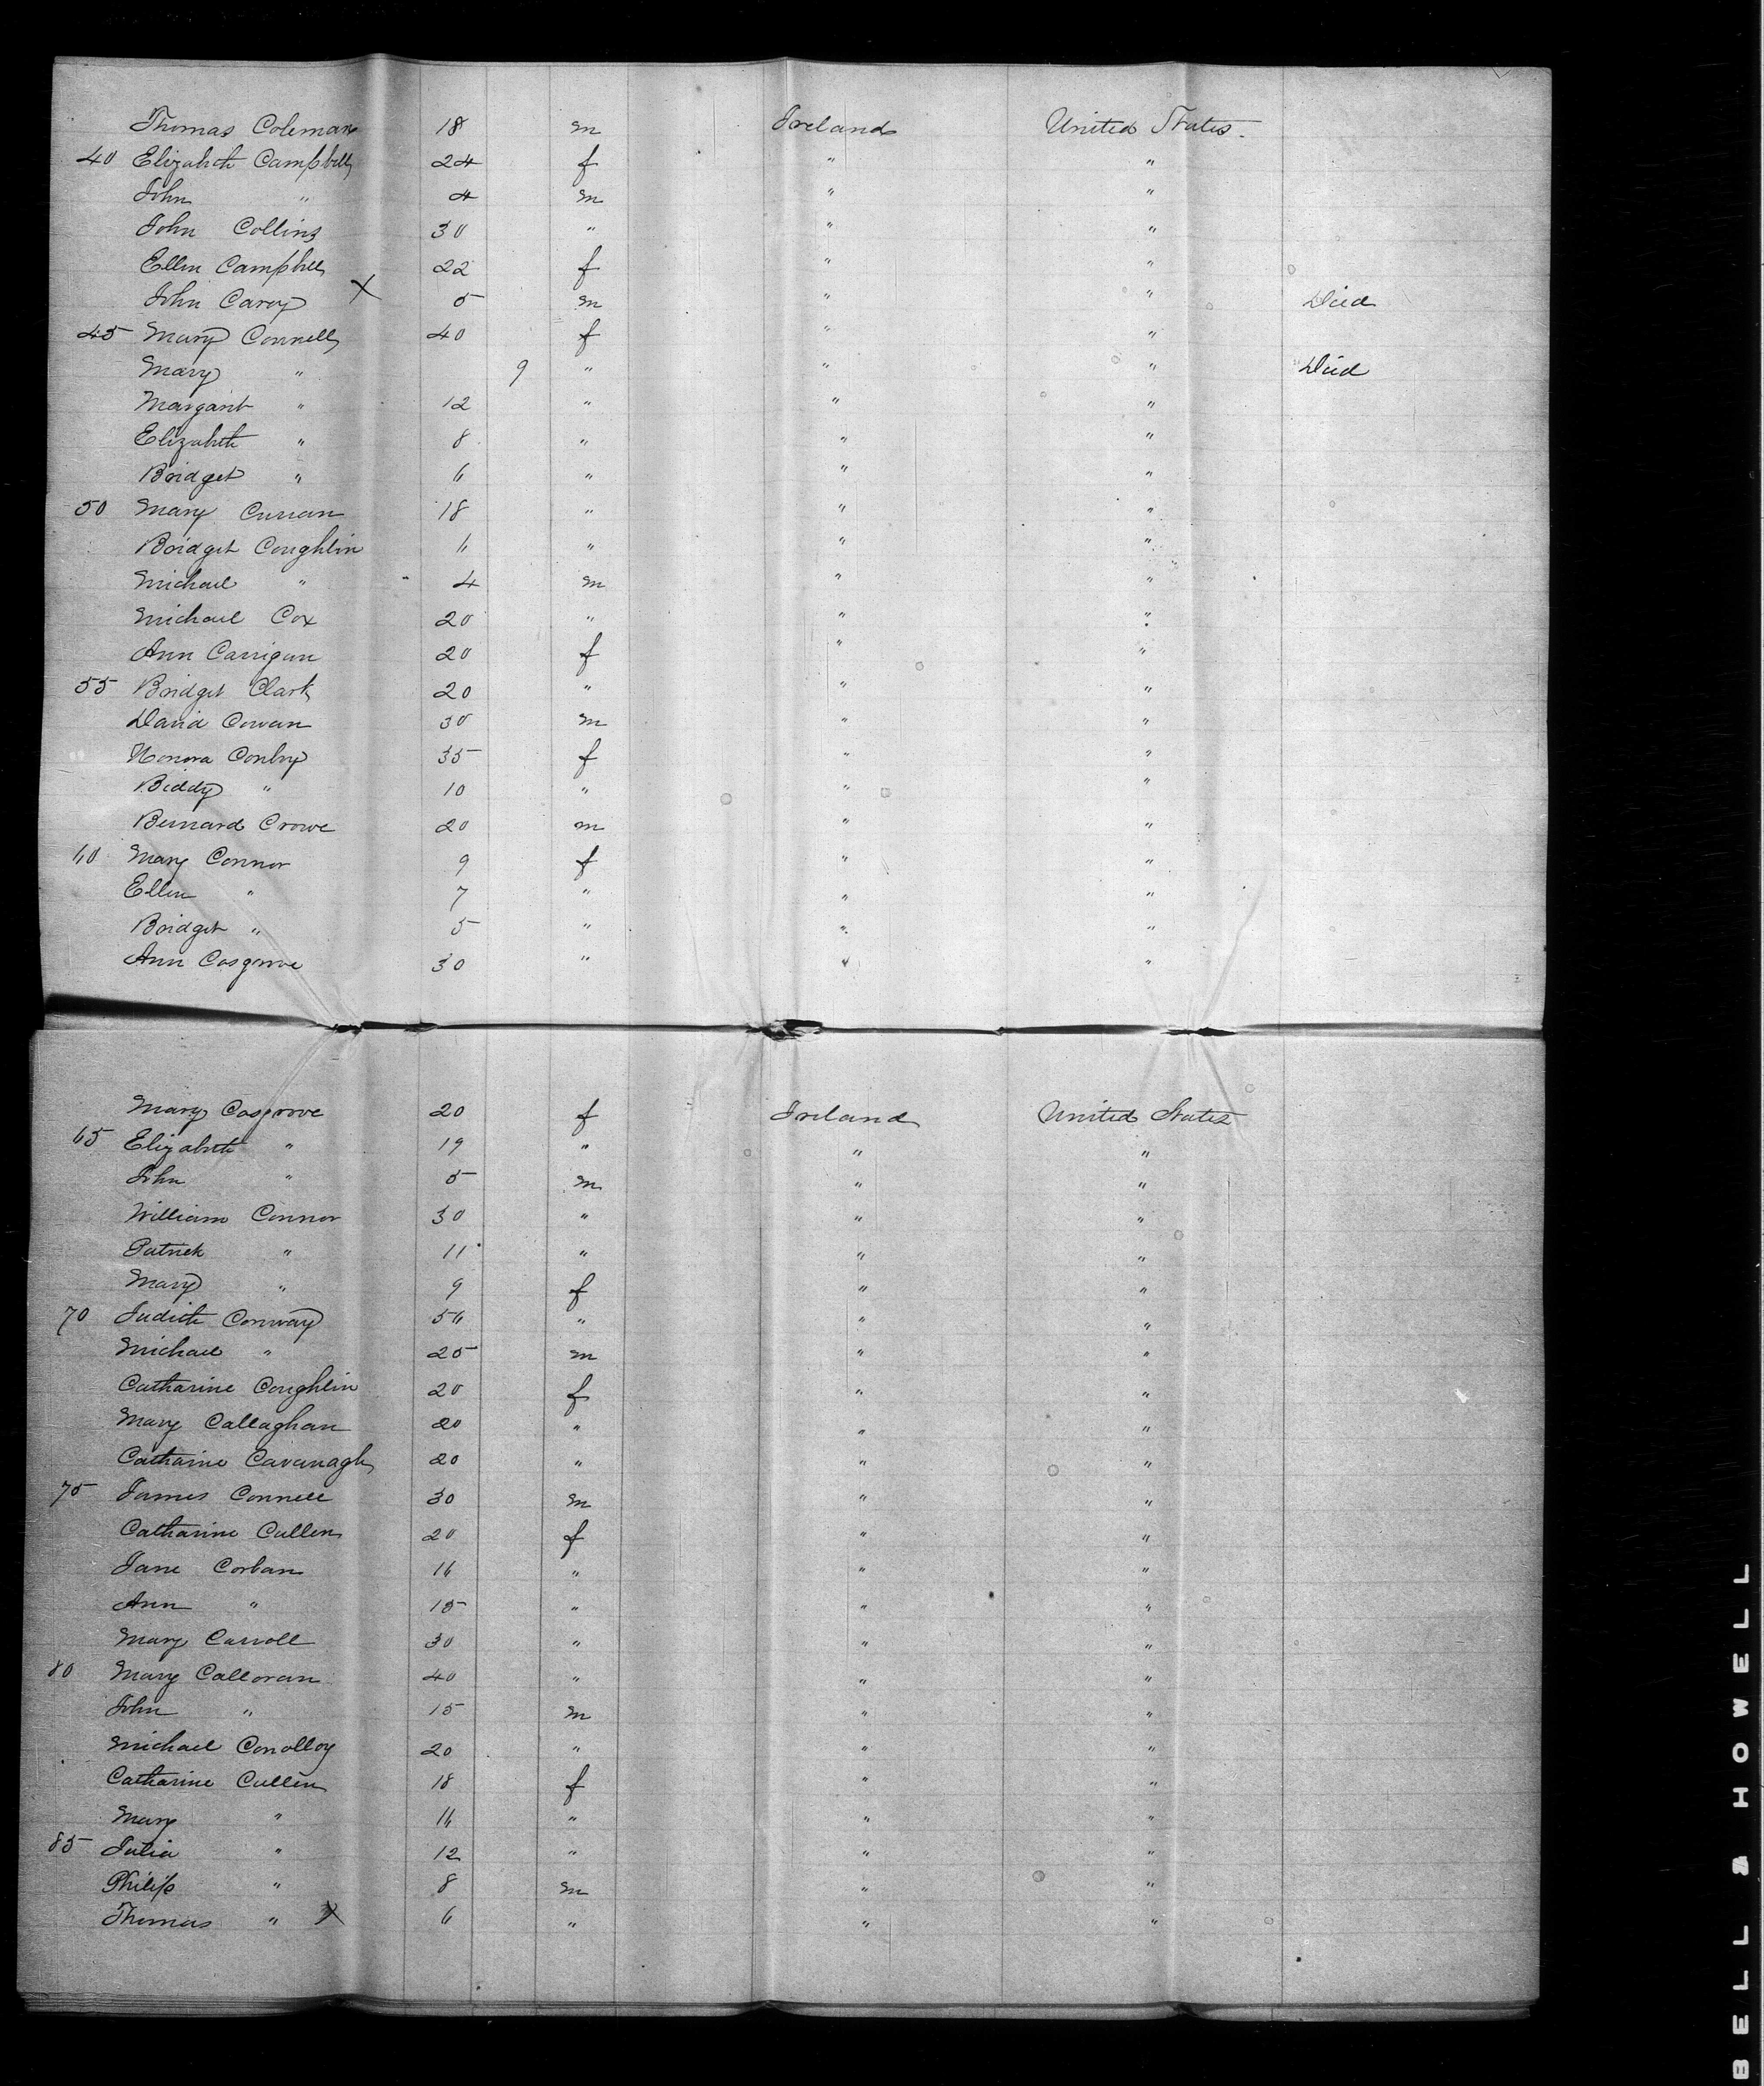 Thomas Coleman 18 m Ireland United States.
40 Elizabeth Campbell 24 f " "
John " 4 m " "
John Collins 30 " " "
Ellen Campbell 22 f " "
John Carey X 5 m " " Died
45 Mary Connell 40 f " "
Mary " 9 " " " Died
Margaret " 12 " " "
Elizabeth " 8 " " "
Bridget " 6 " " "
50 Mary Curran 18 " " "
Bridget Coughlin 6 " " "
Michael " 4 m " "
Michael Cox 20 " " "
Ann Carrigan 20 f " "
55 Bridget Clark 20 " " "
David Cowan 30 m " "
Honora Conboy 35 f " "
Biddy " 10 " " "
Bernard Crowe 20 m " "
60 Mary Connor 9 f " "
Ellen " 7 " " "
Bridget " 5 " " "
Ann Cosgrove 30 " " "
Mary Cosgrove 20 f Ireland United States
65 Elizabeth " 19 " " "
John " 5 m " "
William Connor 30 " " "
Patrick " 11 " " "
Mary " 9 f " "
70 Judith Conway 56 " " "
Michael " 25 m " "
Catharine Coughlin 20 f " "
Mary Callaghan 20 " " "
Catharine Cavanagh 20 " " "
75 James Connell 30 m " "
Catharine Cullen 20 f " "
Jane Corban 16 " " "
Ann " 15 " " "
Mary Carroll 30 " " "
80 Mary Calloran 40 " " "
John " 15 m " "
Michael Conolloy 20 " " "
Catharine Cullen 18 f " "
Mary " 16 " " "
85 Julia " 12 " " "
Philip " 8 m " "
Thomas " X 6 " " "
BELL & HOWELL